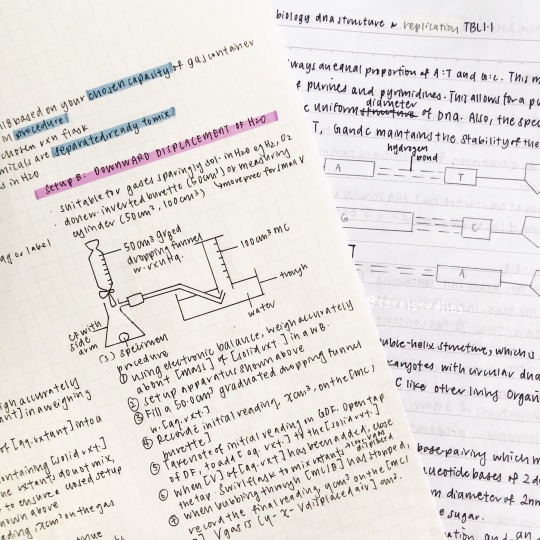 of gas container
based on your chosen capacity
procedure
rxn flask
separated, ready to mix.
in H2O
Setup B: DOWNWARD DISPLACEMENT OF H2O
· suitable for gases sparingly sol. in H2O eg H2, O2
· done w. inverted burette (50cm³) or measuring
cylinder (50cm³, 100cm³) ↳ more prec for small V
or label
50cm³ g'ted
dropping funnel
w. rxn Mg.
100cm³ MC
trough
water
CF with
side
arm
(s) specimen
procedure
① using electronic balance, weigh accurately
about [mass] of [solid rxt.] in a wb.
② setup apparatus shown above
③ Fill a 50.0cm³ graduated dropping funnel
w. [aq. rxt.]
④ Record initial reading, xcm³, on the [mc/
burette]
⑤ Take note of initial reading on GDF. Open tap
of DF, to add [aq. rxt.] to the [solid rxt.]
⑥ when [V] of [aq. rxt.] has been added, close
the tap. Swirl flask to mix rxtants
⑦ when bubbling through [MC/B] has stopped,
record the final reading ycm³ on the [mc/
B]. Vgas is [y-x-Vdisplaced air] cm³.
weigh accurately
in a weighing
of [aq. rxtant] into a
containing [solid rxt.]
rxtants do not mix,
to ensure a closed setup
shown above
reading xcm³ on the gas
biology dna structure & replication TBL1.1
always an equal proportion of A:T and G:C. This
purines and pyrimidines. This allows for a
uniform diameter structure of DNA. Also, the
T, G and C maintains the stability of the
hydrogen
bond
A
T
G
C
T
A
@coralstudiies
double-helix structure, which
circular
C like other living
base pairing which
nucleotide bases of
diameter of 2nm
sugar.
and